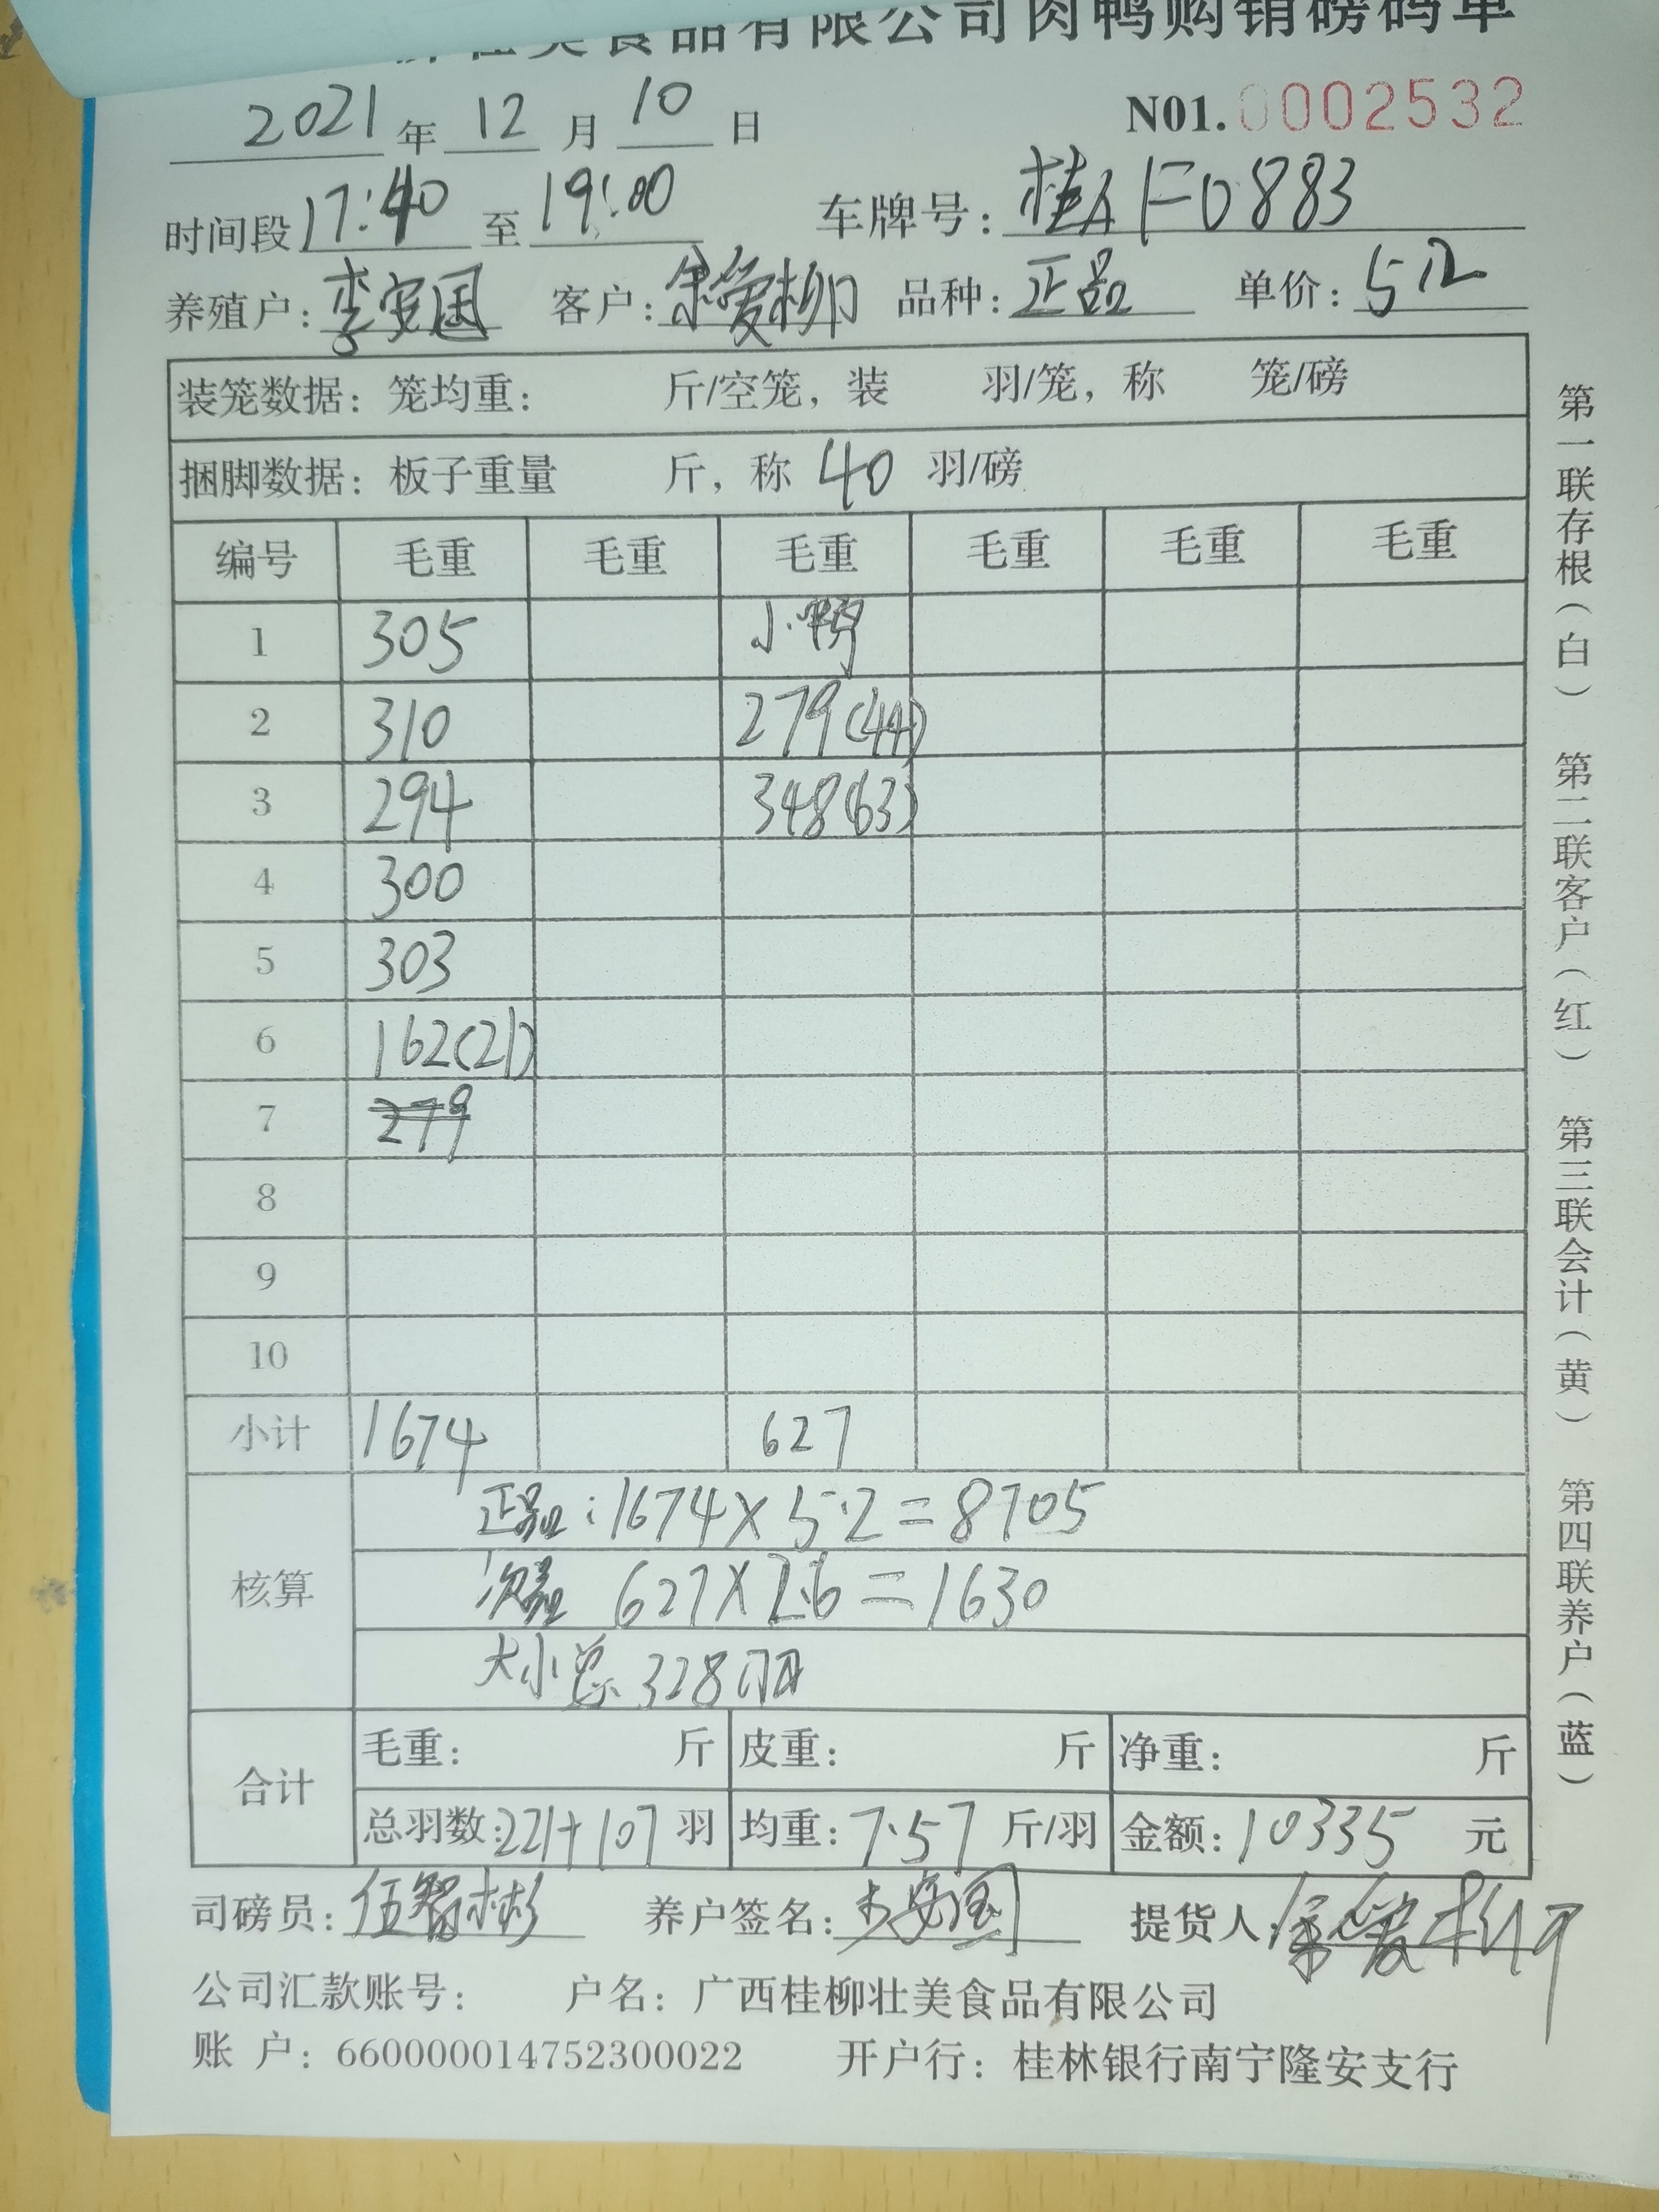 壮美食品有限公司肉鸭购销磅码单
2021 年 12 月 10 日 N01.0002532
时间段 17:40 至 19:00 车牌号: 桂AF0883
养殖户: 李安国 客户: 余爱柳 品种: 正品 单价: 5.2
装笼数据: 笼均重: 斤/空笼, 装 羽/笼, 称 笼/磅
捆脚数据: 板子重量 斤, 称 40 羽/磅
编号 毛重 毛重 毛重 毛重 毛重 毛重
1 305 小鸭
2 310 279(44)
3 294 348(63)
4 300
5 303
6 162(21)
7 279
8
9
10
小计 1674 627
核算 正品:1674×5.2=8705
次品 627×2.6=1630
大小总328羽
合计 毛重: 斤 皮重: 斤 净重: 斤
总羽数:221+107 羽 均重: 7.57 斤/羽 金额: 10335 元
司磅员: 伍智彬 养户签名: 李安国 提货人: 余爱柳
公司汇款账号: 户名: 广西桂柳壮美食品有限公司
账 户: 660000014752300022 开户行: 桂林银行南宁隆安支行
第一联存根(白) 第二联客户(红) 第三联会计(黄) 第四联养户(蓝)